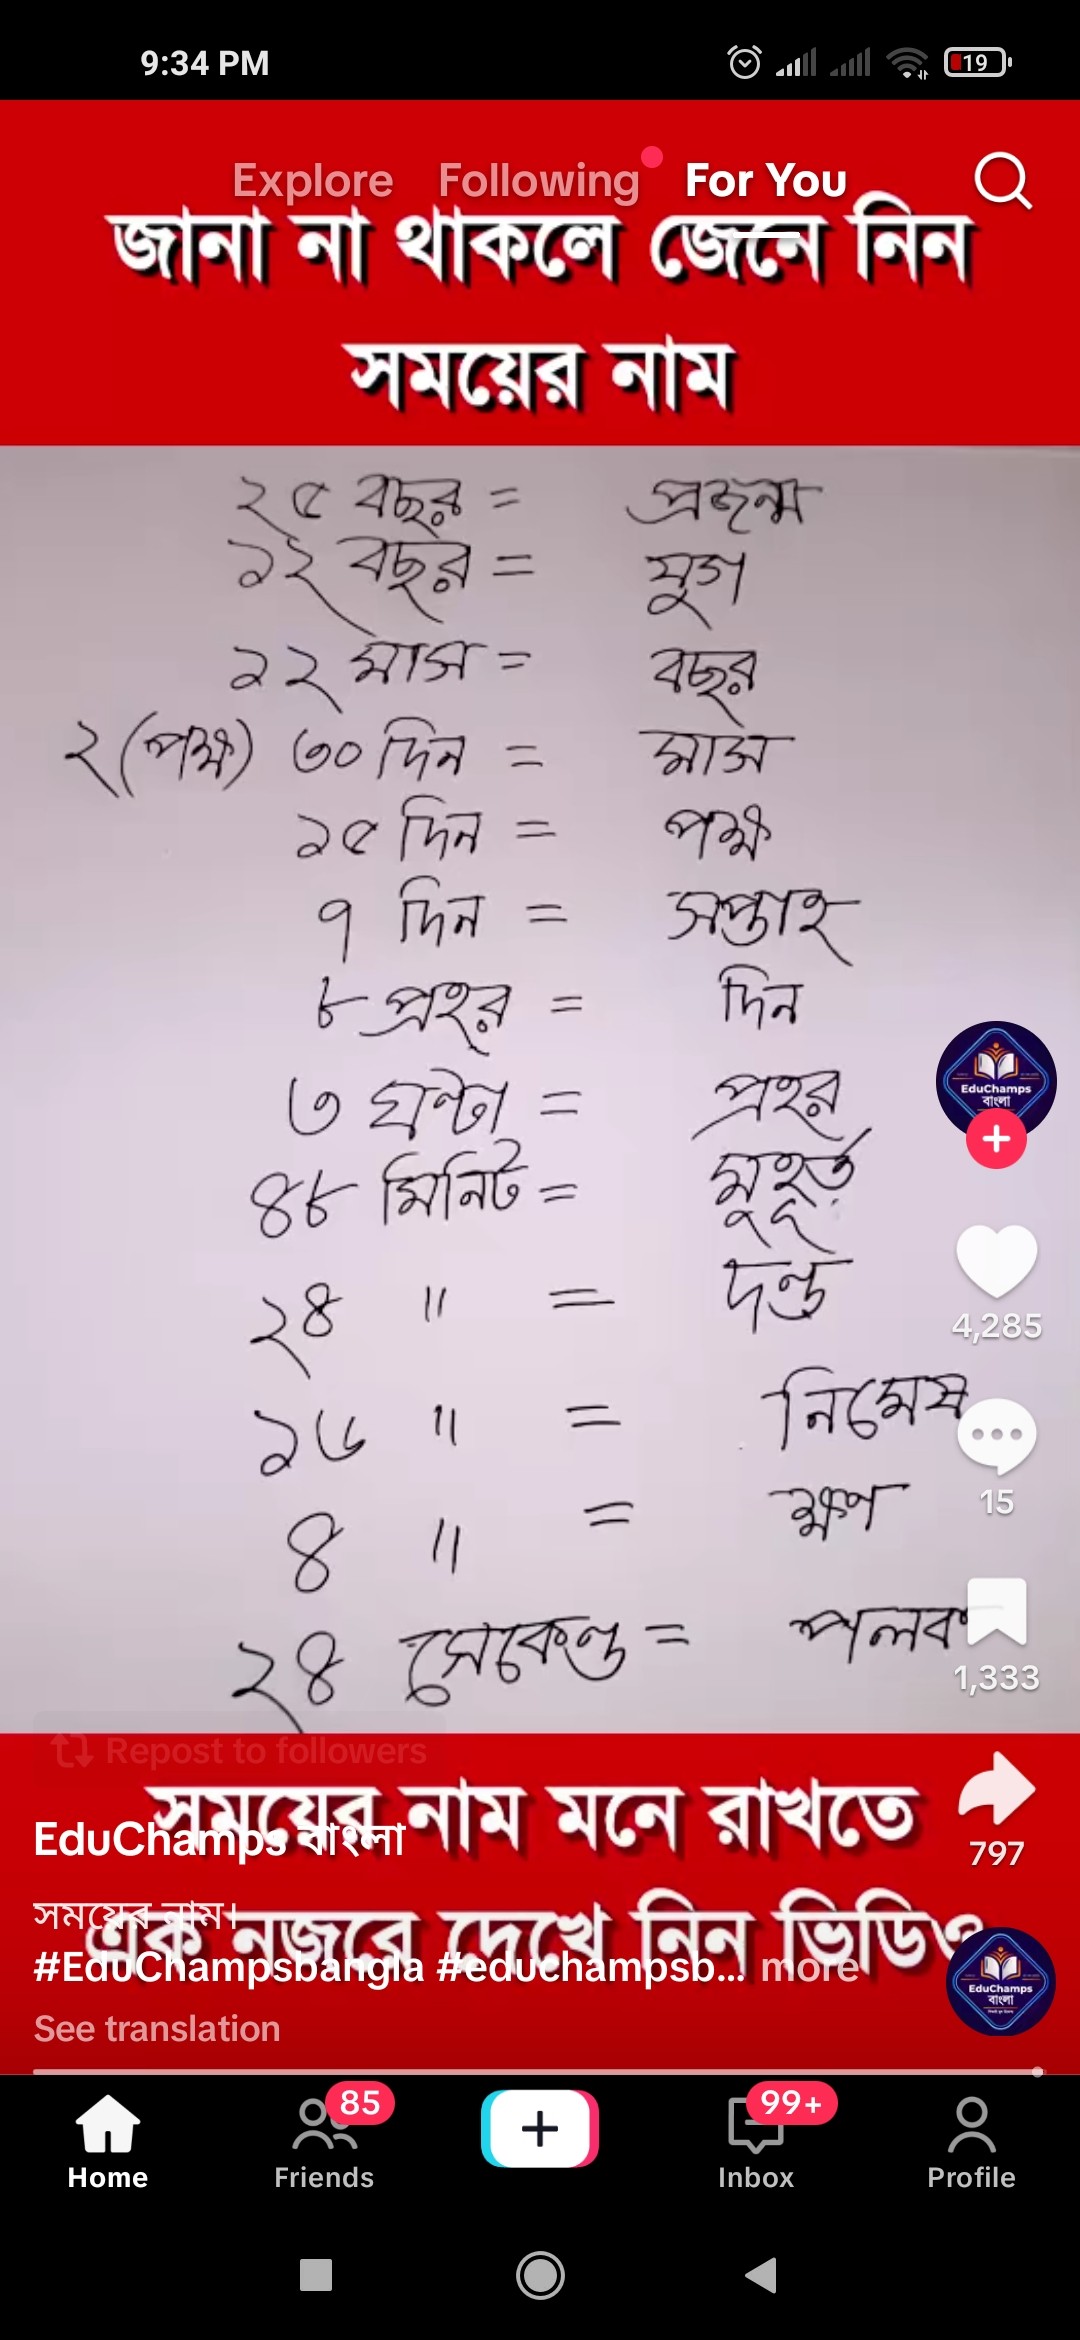 9:34 PM
19
Explore Following For You
জানা না থাকলে জেনে নিন
সময়ের নাম
২৫ বছর = প্রজন্ম
১২ বছর = যুগ
১২ মাস = বছর
২ (পক্ষ) ৩০ দিন = মাস
১৫ দিন = পক্ষ
৭ দিন = সপ্তাহ
৮ প্রহর = দিন
৩ ঘন্টা = প্রহর
৪৮ মিনিট = মুহূর্ত
২৪ " = দন্ড
১৬ " = নিমেষ
৪ " = ক্ষণ
২৪ সেকেন্ড = পলক
EduChamps
বাংলা
4,285
15
1,333
797
Repost to followers
সময়ের নাম মনে রাখতে
EduChamps বাংলা
সময়ের নাম।
এক নজরে দেখে নিন ভিডিও
#EduChampsbangla #educhampsb... more
EduChamps
বাংলা
See translation
85
99+
Home Friends Inbox Profile